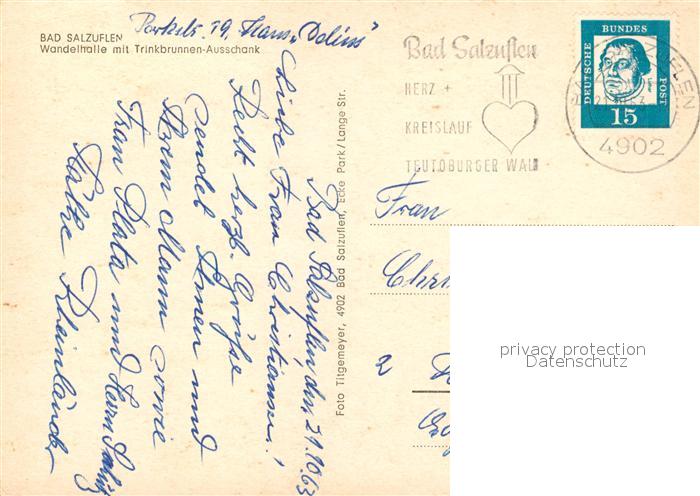 BAD SALZUFLEN
Wandelhalle mit Trinkbrunnen-Ausschank
Parkstr. 19, Haus „Delius"
Bad Salzuflen
HERZ +
KREISLAUF
TEUTOBURGER WALD
DEUTSCHE BUNDES POST
15
4902
Foto Titgemeyer, 4902 Bad Salzuflen, Ecke Park/Lange Str.
Bad Salzuflen, den 21.10.63
Liebe Frau Christiansen!
Recht herzl. Grüße
sendet Ihnen und
Ihrem Mann sowie
Frau Plata und Herrn
Käthe Rheinländer
Frau
Chri
2
privacy protection
Datenschutz